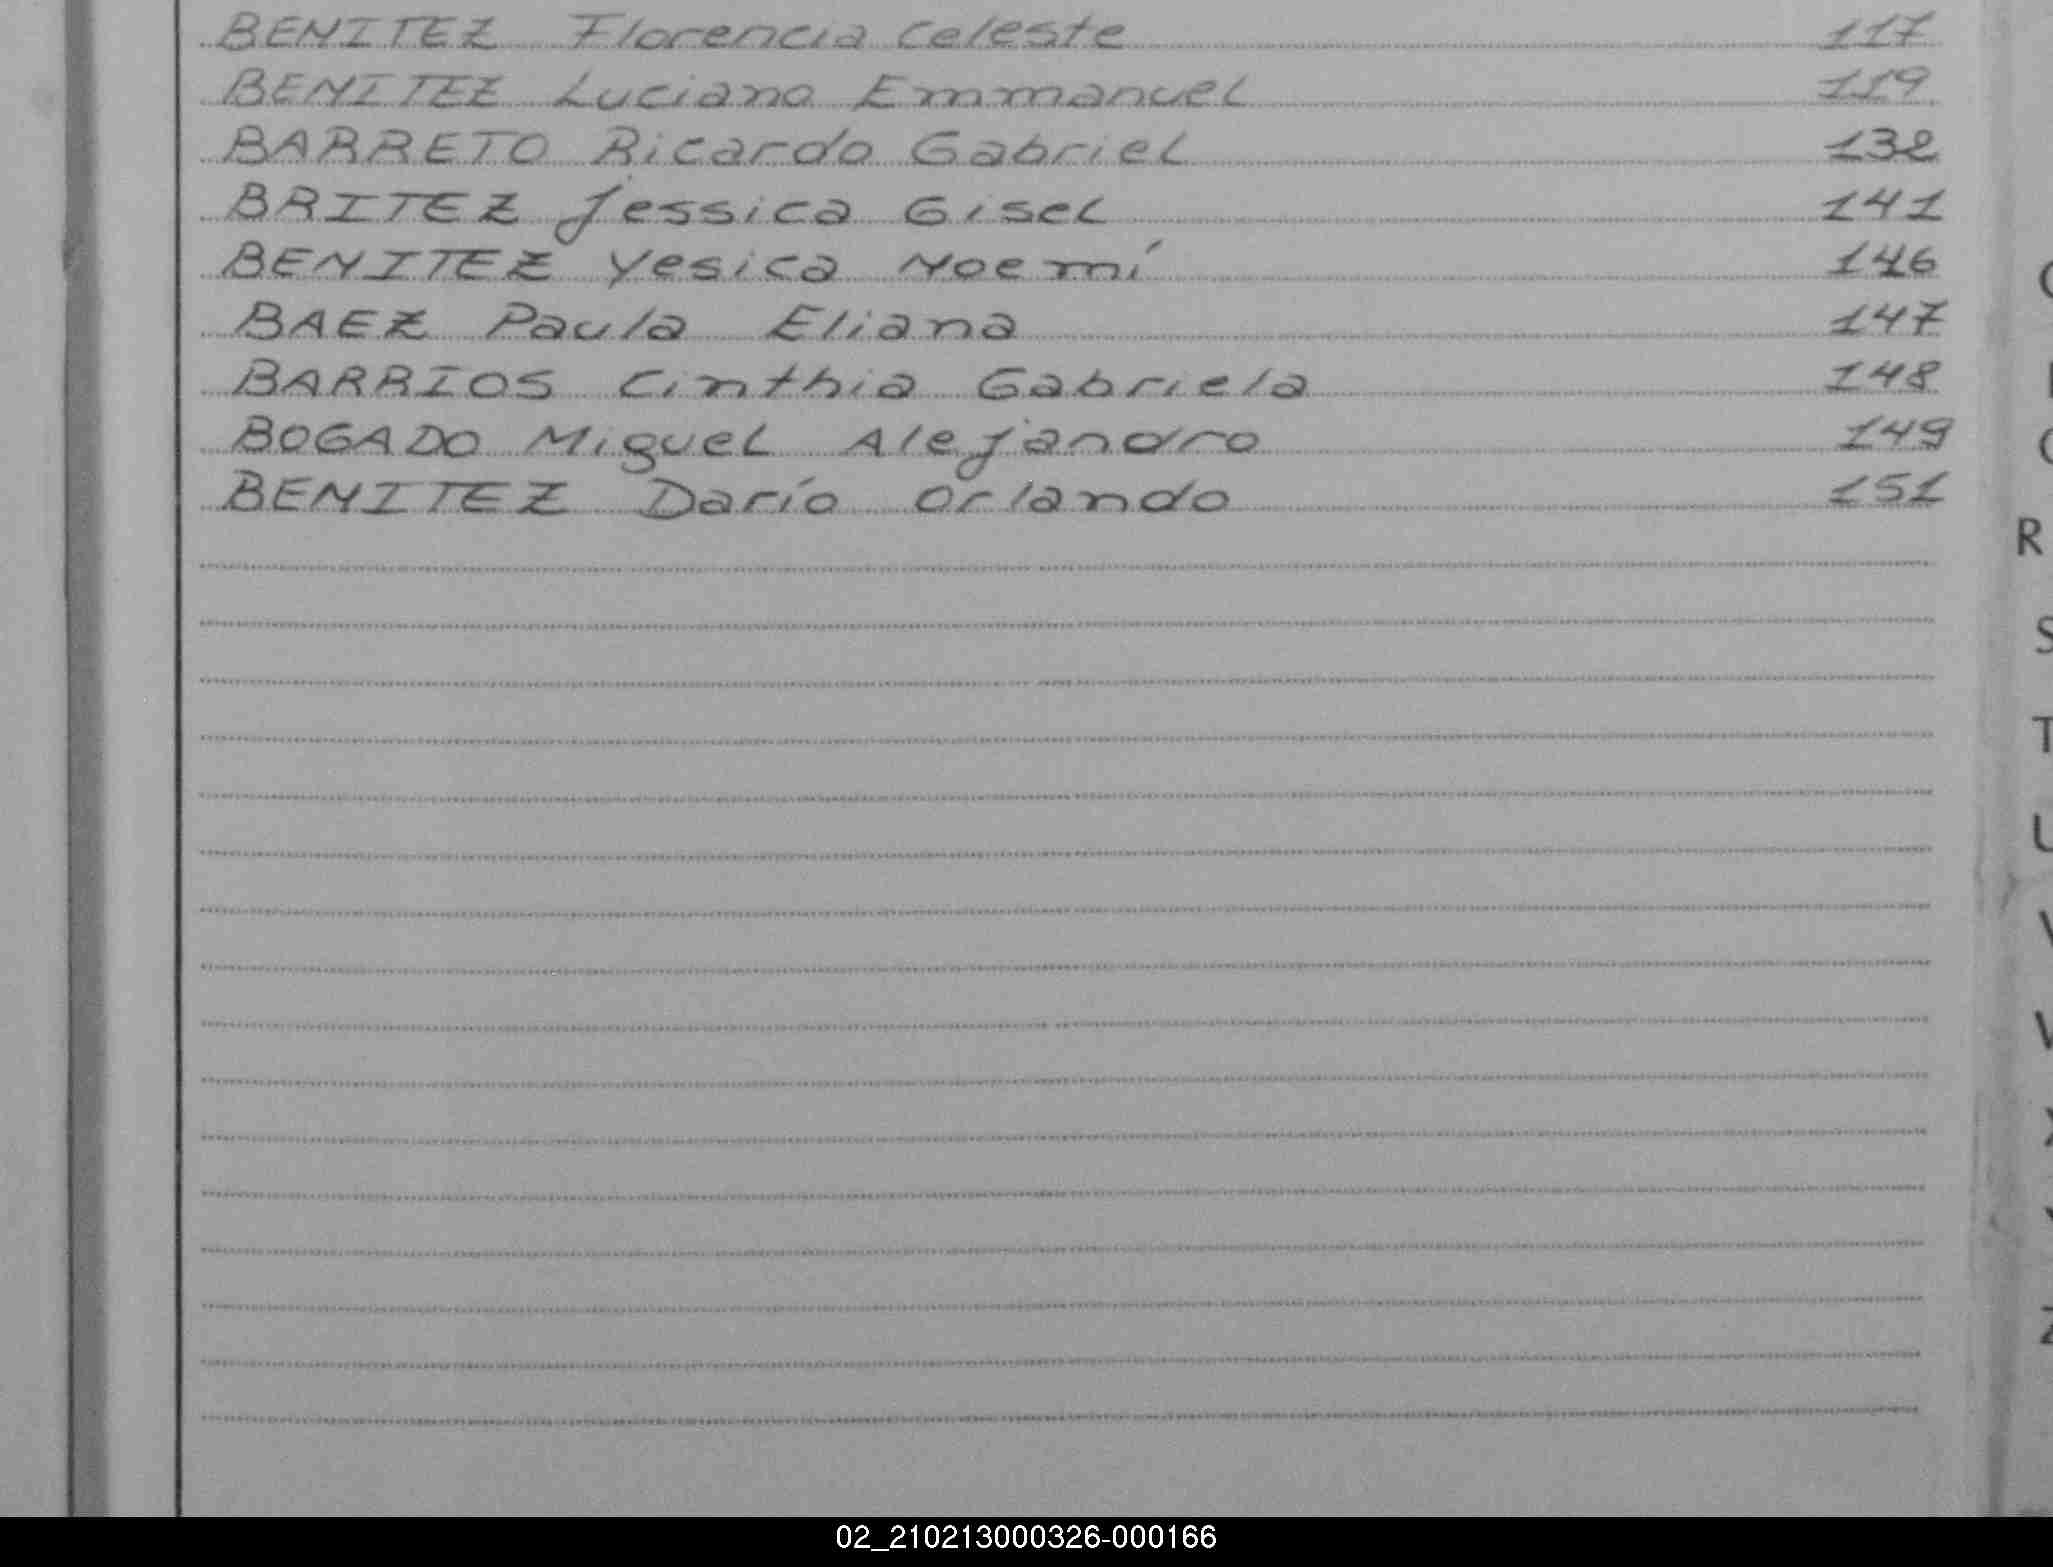 BENITEZ Florencia Celeste 117
BENITEZ Luciano Emmanuel 119
BARRETO Ricardo Gabriel 132
BRITEZ Jessica Gisel 141
BENITEZ Yesica Noemí 146
BAEZ Paula Eliana 147
BARRIOS Cinthia Gabriela 148
BOGADO Miguel Alejandro 149
BENITEZ Darío Orlando 151
R
S
T
U
V
X
Z
02_210213000326-000166